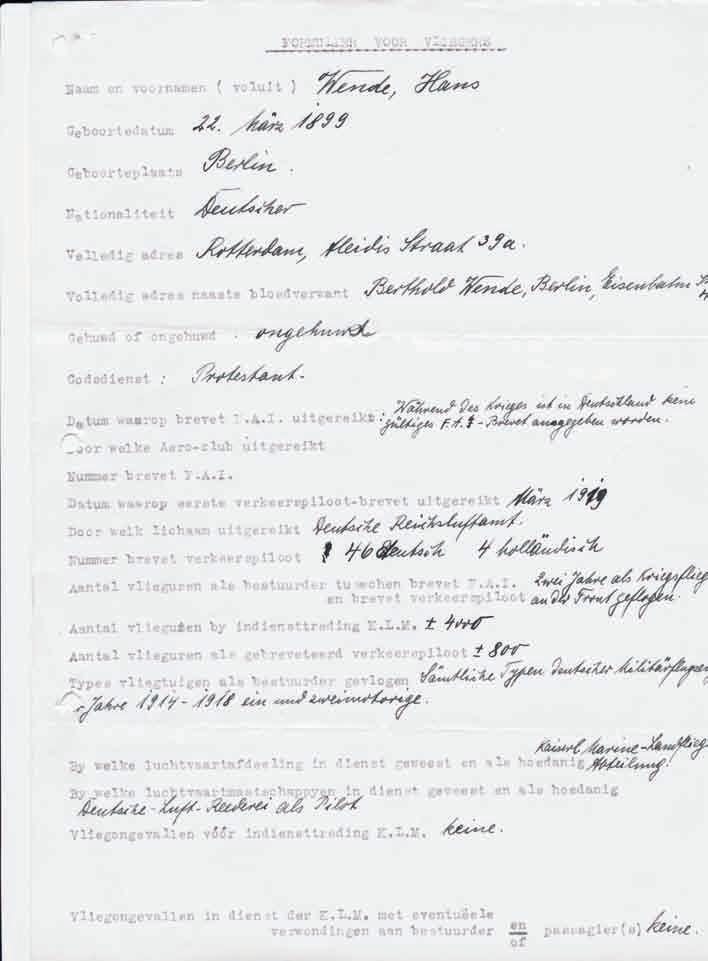 FORMULIER VOOR VLIEGERS
Naam en voornamen ( voluit ) Wende, Hans
Geboortedatum 22. März 1899
Geboorteplaats Berlin.
Nationaliteit Deutscher
Volledig adres Rotterdam, Aleidis Straat 39a.
Volledig adres naaste bloedverwant Berthold Wende, Berlin, Eisenbahn
Gehuwd of ongehuwd . ongehuwd
Godsdienst : Protestant.
Während des Krieges ist in Deutschland keine
Datum waarop brevet F.A.I. uitgereikt: gültiges F.A.I-Brevet ausgegeben worden.
Door welke Aero-club uitgereikt
Nummer brevet F.A.I.
Datum waarop eerste verkeerspiloot-brevet uitgereikt März 1919
Door welk lichaam uitgereikt Deutsche Reichsluftamt.
Nummer brevet verkeerspiloot 46 deutsch 4 holländisch
Aantal vlieguren als bestuurder tusschen brevet F.A.I. Zwei Jahre als Kriegsflieg
en brevet verkeerspiloot an der Front geflogen.
Aantal vlieguren by indiensttreding K.L.M. ± 4000
Aantal vlieguren als gebreveteerd verkeerspiloot ± 800
Types vliegtuigen als bestuurder gevlogen Sämtliche Typen deutscher Militärflugzeug
Jahre 1914 - 1918 ein und zweimotorige.
Kaiserl Marine-Landflieg
By welke luchtvaartafdeeling in dienst geweest en als hoedanig Abteilung.
By welke luchtvaartmaatschappyen in dienst geweest en als hoedanig
Deutsche-Luft-Reederei als Pilot
Vliegongevallen vóór indiensttreding K.L.M. keine.
Vliegongevallen in dienst der K.L.M. met eventuëele
verwondingen aan bestuurder en passagier(s) keine.
of